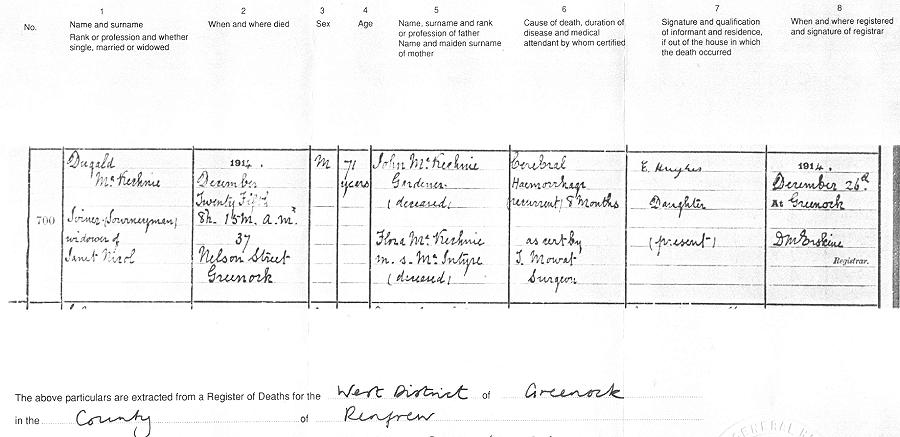 No.
1
Name and surname
Rank or profession and whether
single, married or widowed
2
When and where died
3
Sex
4
Age
5
Name, surname and rank
or profession of father
Name and maiden surname
of mother
6
Cause of death, duration of
disease and medical
attendant by whom certified
7
Signature and qualification
of informant and residence,
if out of the house in which
the death occurred
8
When and where registered
and signature of registrar
700
Dugald
McKechnie
Joiner (Journeyman)
widower of
Janet Nicol
1914.
December
Twenty Fifth
8h. 15m. a.m.
37
Nelson Street
Greenock
M
71
years
John McKechnie
Gardener
(deceased)
Flora McKechnie
m.s. McIntyre
(deceased)
Cerebral
Haemorrhage
(recurrent) 8 Months
as cert by
J. Mowat
Surgeon
E. Hughes
Daughter
(present)
1914.
December 26th
At Greenock
Erskine
Registrar.
The above particulars are extracted from a Register of Deaths for the West District of Greenock
in the County of Renfrew